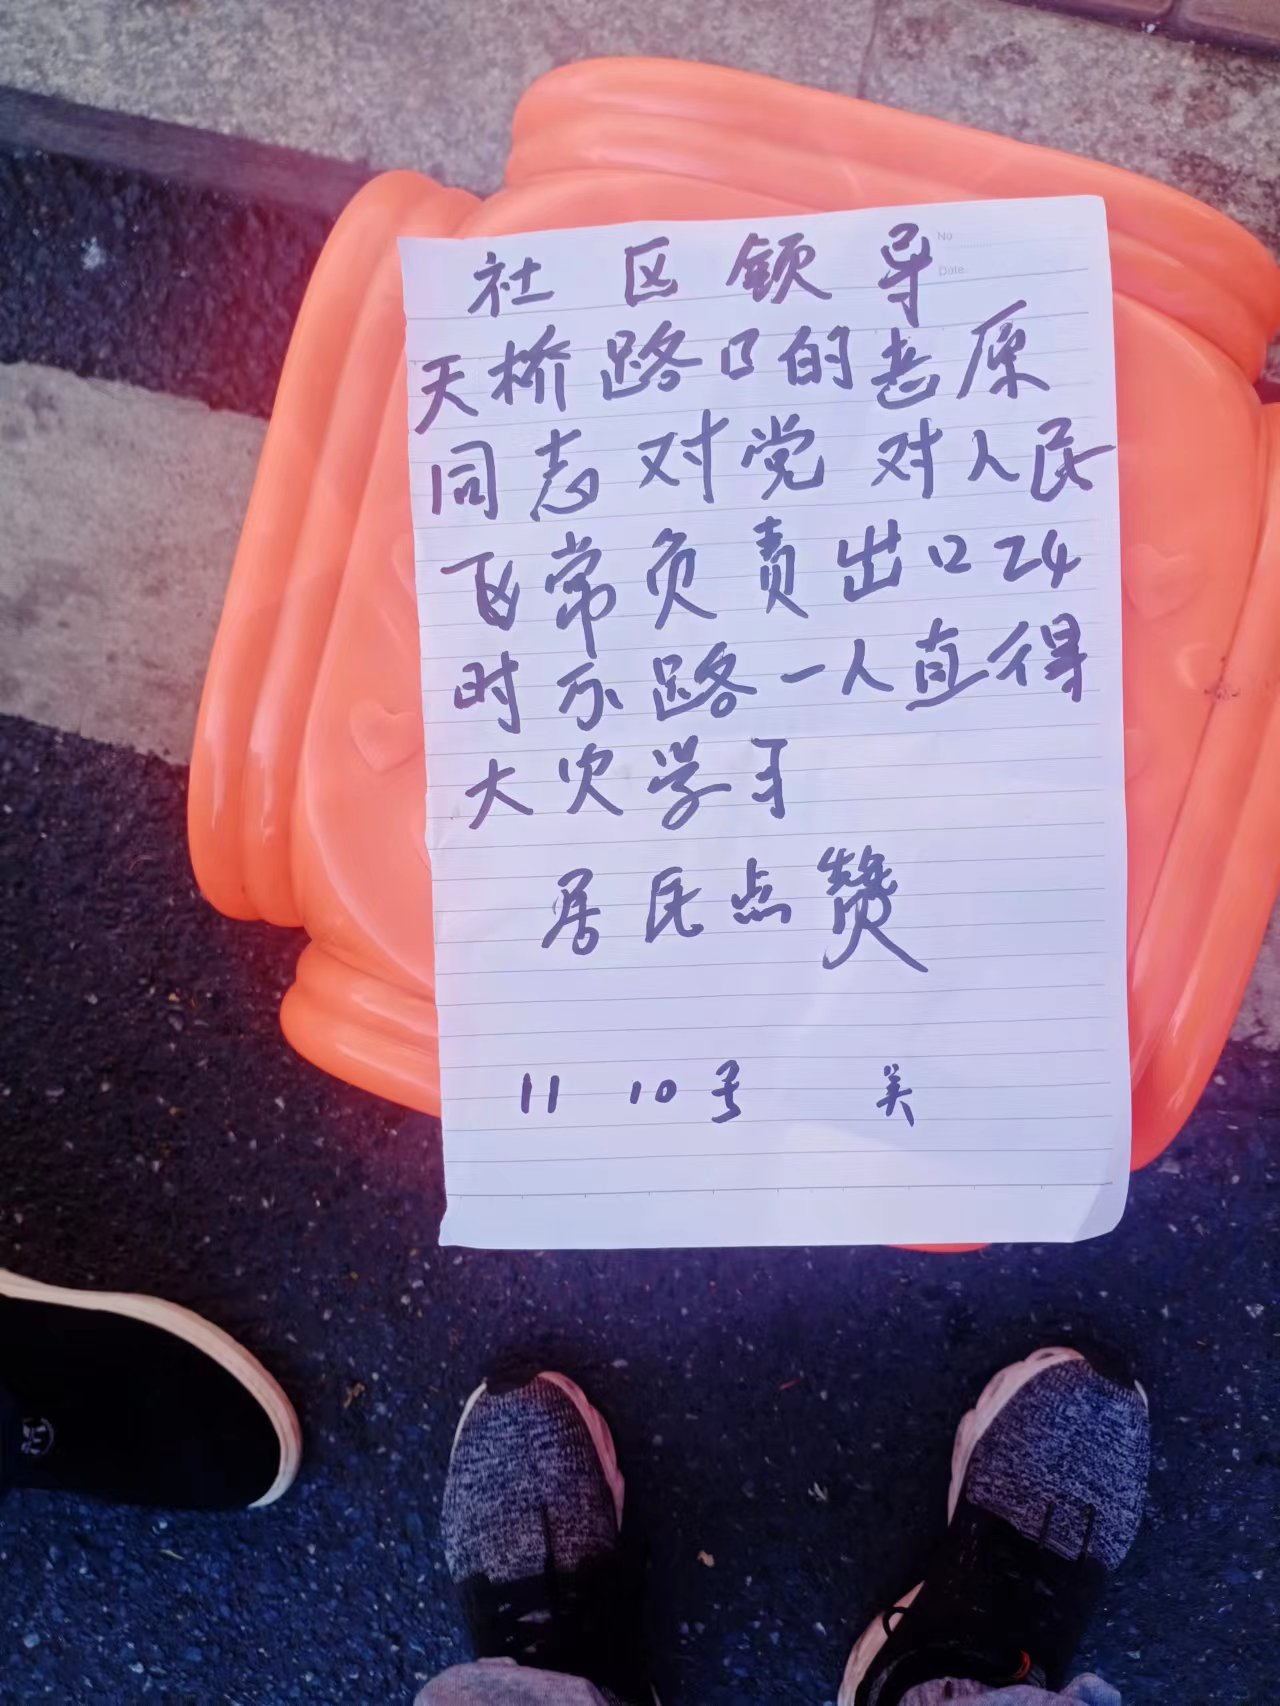 社区领导
No
Date
天桥路口的志愿
同志对党对人民
非常负责出口24
时不路一人直得
大次学习
居民点赞
11 10号 美